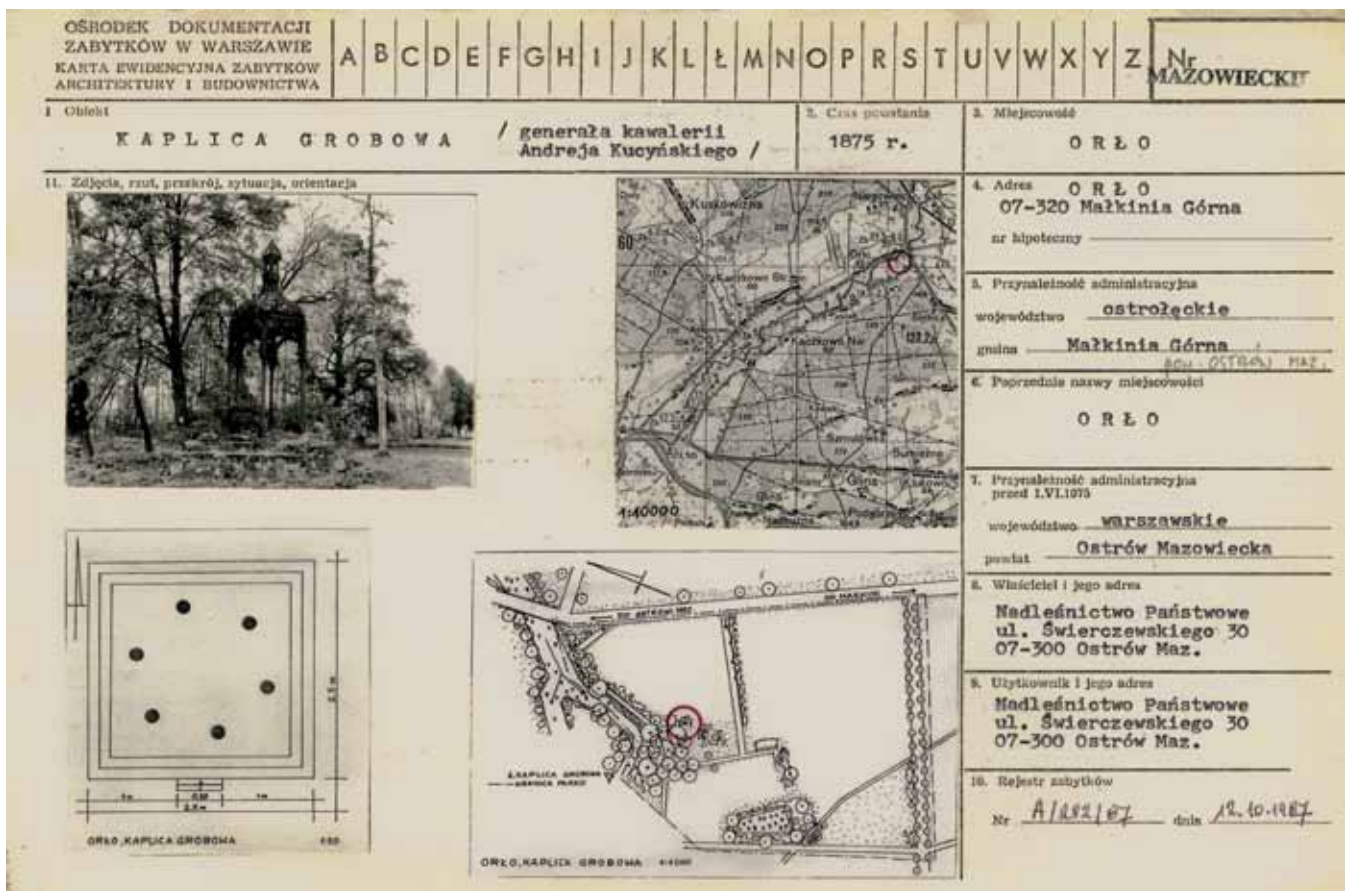 OŚRODEK DOKUMENTACJI
ZABYTKÓW W WARSZAWIE
KARTA EWIDENCYJNA ZABYTKÓW
ARCHITEKTURY I BUDOWNICTWA
A B C D E F G H I J K L Ł M N O P R S T U V W X Y Z
Nr
MAZOWIECKIE
1 Obiekt
KAPLICA GROBOWA
/ generała kawalerii
Andreja Kucyńskiego /
2. Czas powstania
1875 r.
3. Miejscowość
ORŁO
11. Zdjęcia, rzut, przekrój, sytuacja, orientacja
Kuskowizna
60
Kaczkowo Nw
Glina
1:10000
ORŁO, KAPLICA GROBOWA
1m
1m
2,5 m
2,5 m
KAPLICA GROBOWA
GRANICA PARKU
ORŁO, KAPLICA GROBOWA
4. Adres ORŁO
07-320 Małkinia Górna
nr hipoteczny
5. Przynależność administracyjna
województwo ostrołęckie
gmina Małkinia Górna
POW. OSTRÓW MAZ.
6. Poprzednie nazwy miejscowości
ORŁO
7. Przynależność administracyjna
przed 1.VI.1975
województwo warszawskie
powiat Ostrów Mazowiecka
8. Właściciel i jego adres
Nadleśnictwo Państwowe
ul. Świerczewskiego 30
07-300 Ostrów Maz.
9. Użytkownik i jego adres
Nadleśnictwo Państwowe
ul. Świerczewskiego 30
07-300 Ostrów Maz.
10. Rejestr zabytków
Nr dnia 12.10.1987